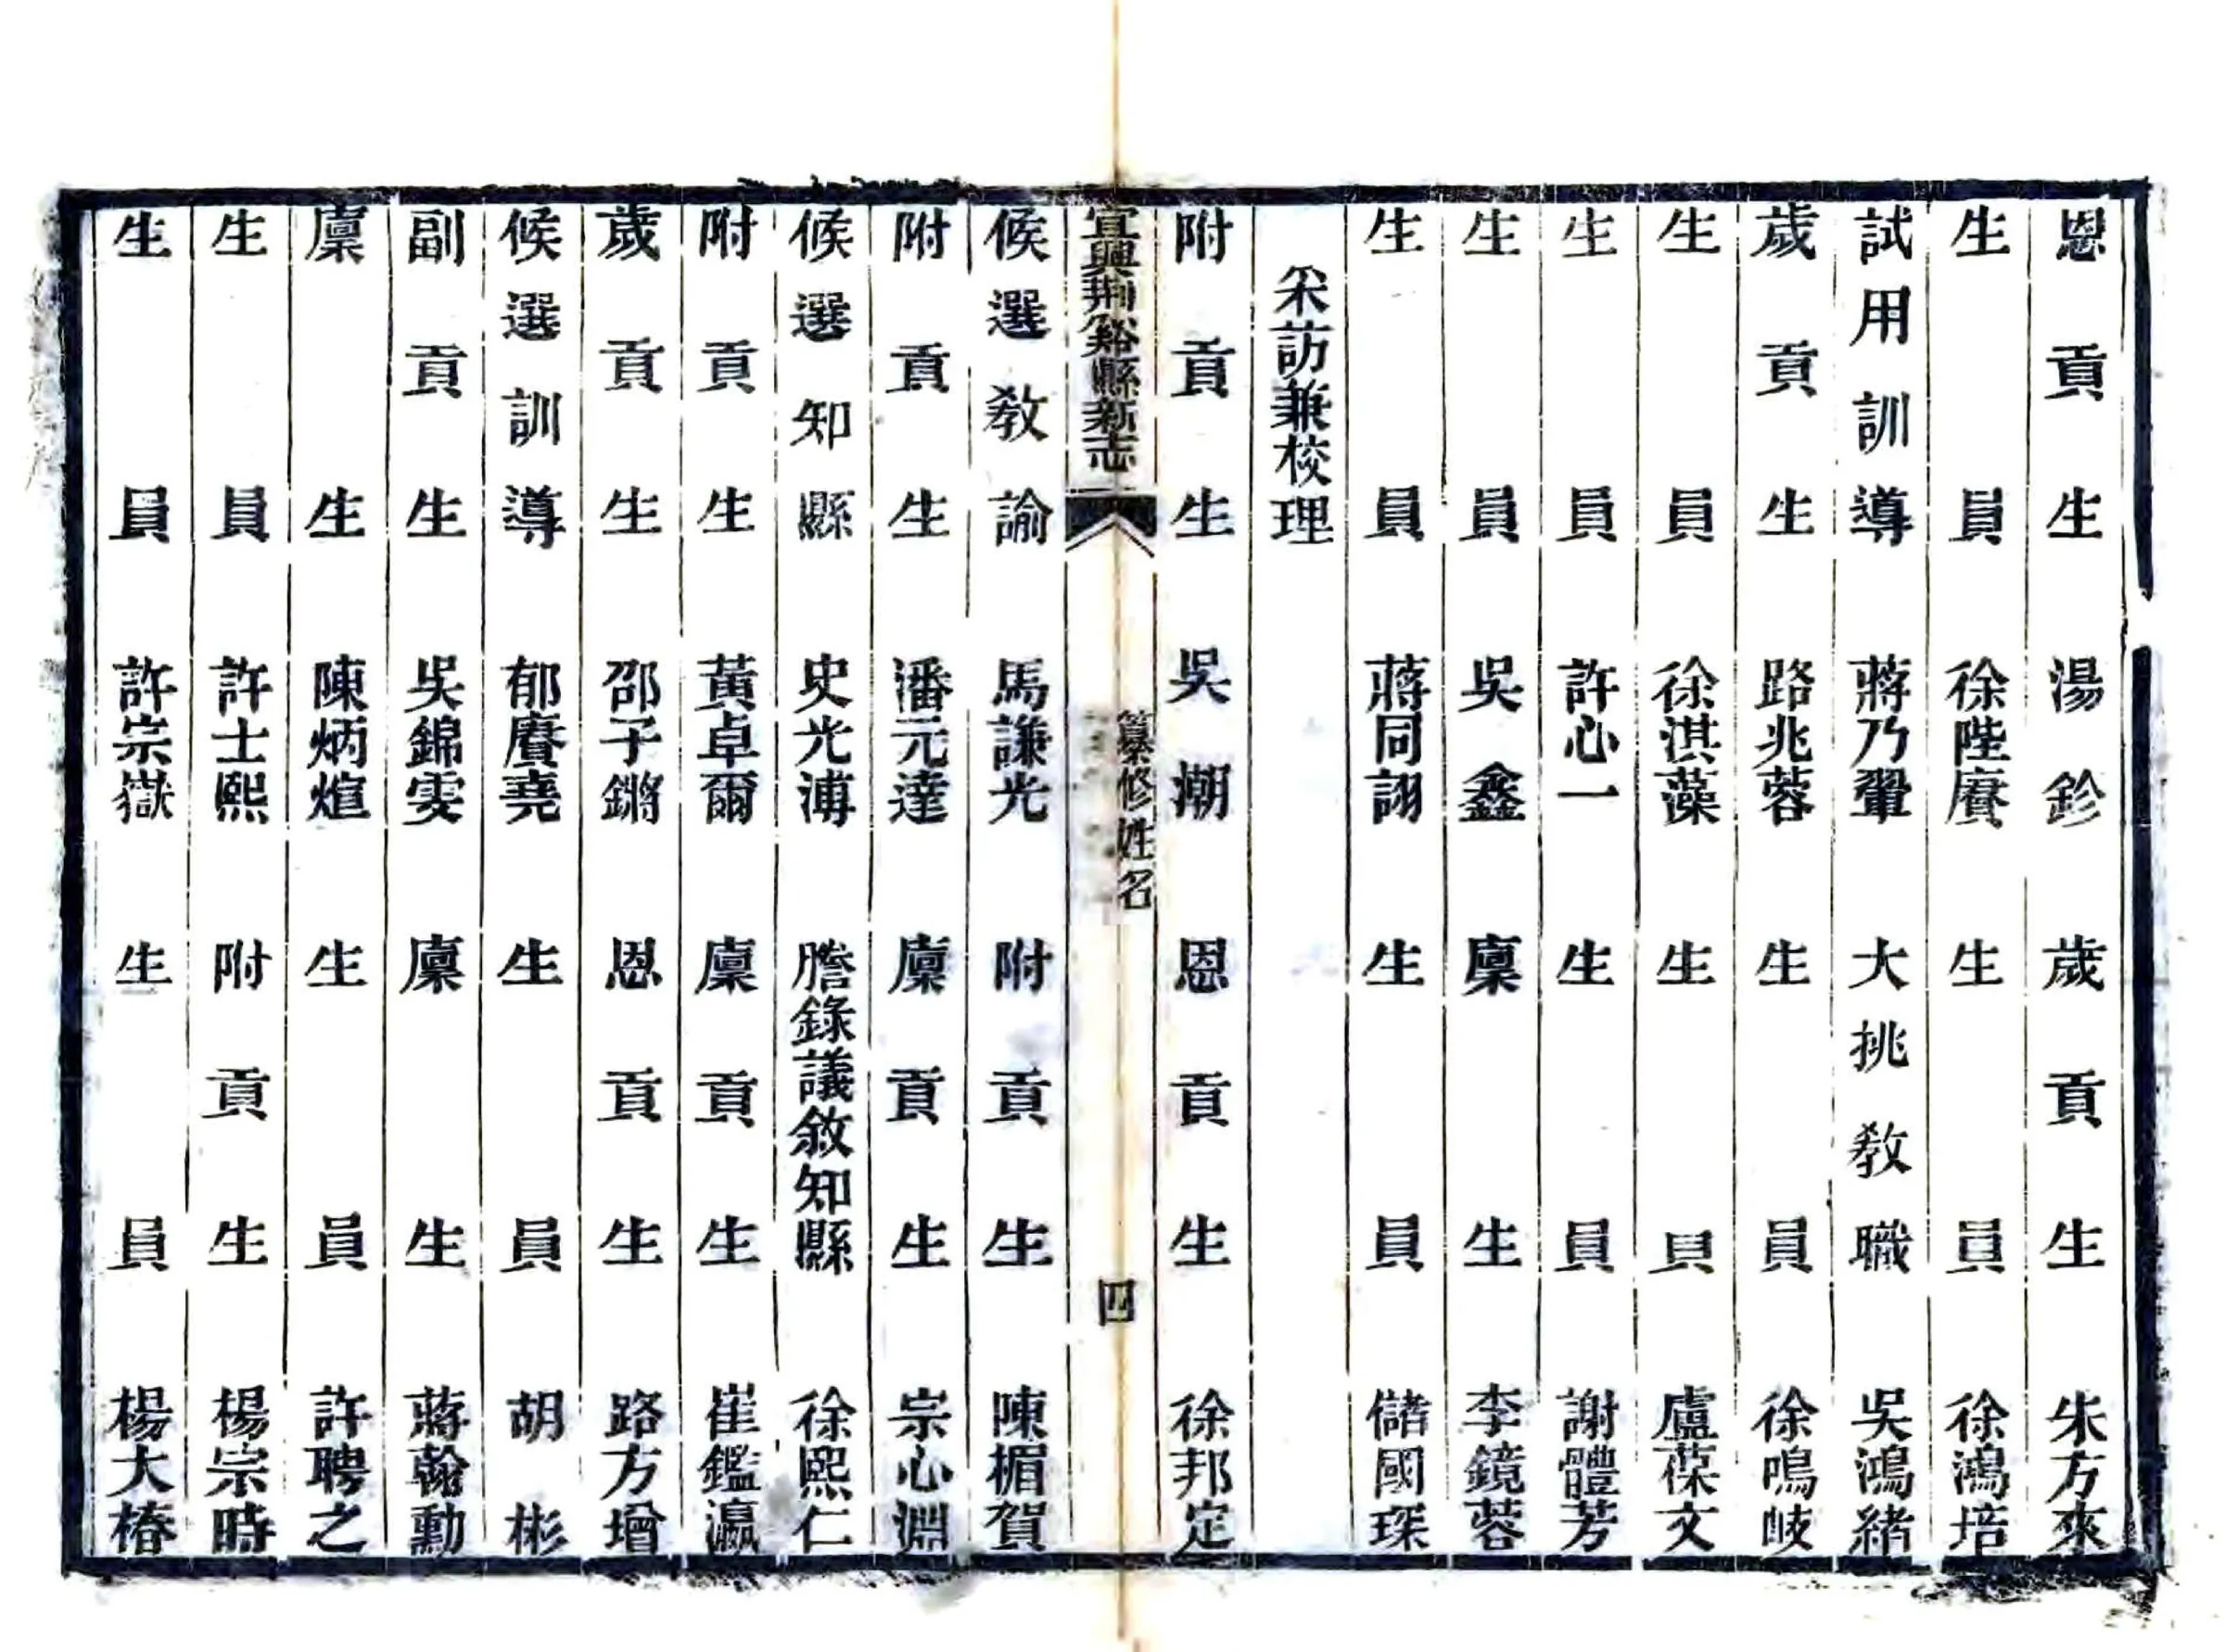 恩貢生 湯鉁 歲貢生 朱方來
生員 徐陛賡 生員 徐鴻培
試用訓導 蔣乃翬 大挑教職 吳鴻緒
歲貢生 路兆蓉 生員 徐鳴岐
生員 徐淇藻 生員 盧葆文
生員 許心一 生員 謝體芳
生員 吳鑫 廩生 李鏡蓉
生員 蔣同詡 生員 儲國琛
采訪兼校理
附貢生 吳潮 恩貢生 徐邦定
宜興荆谿縣新志 纂修姓名 四
候選教諭 馬謙光 附貢生 陳楣賀
附貢生 潘元達 廩貢生 宗心淵
候選知縣 史光溥 謄錄議敘知縣 徐熙仁
附貢生 黃卓爾 廩貢生 崔鑑瀛
歲貢生 邵子鏘 恩貢生 路方增
候選訓導 郁賡堯 生員 胡彬
副貢生 吳錦雯 廩生 蔣翰勳
廩生 陳炳煊 生員 許聘之
生員 許士熙 附貢生 楊宗時
生員 許宗嶽 生員 楊大椿